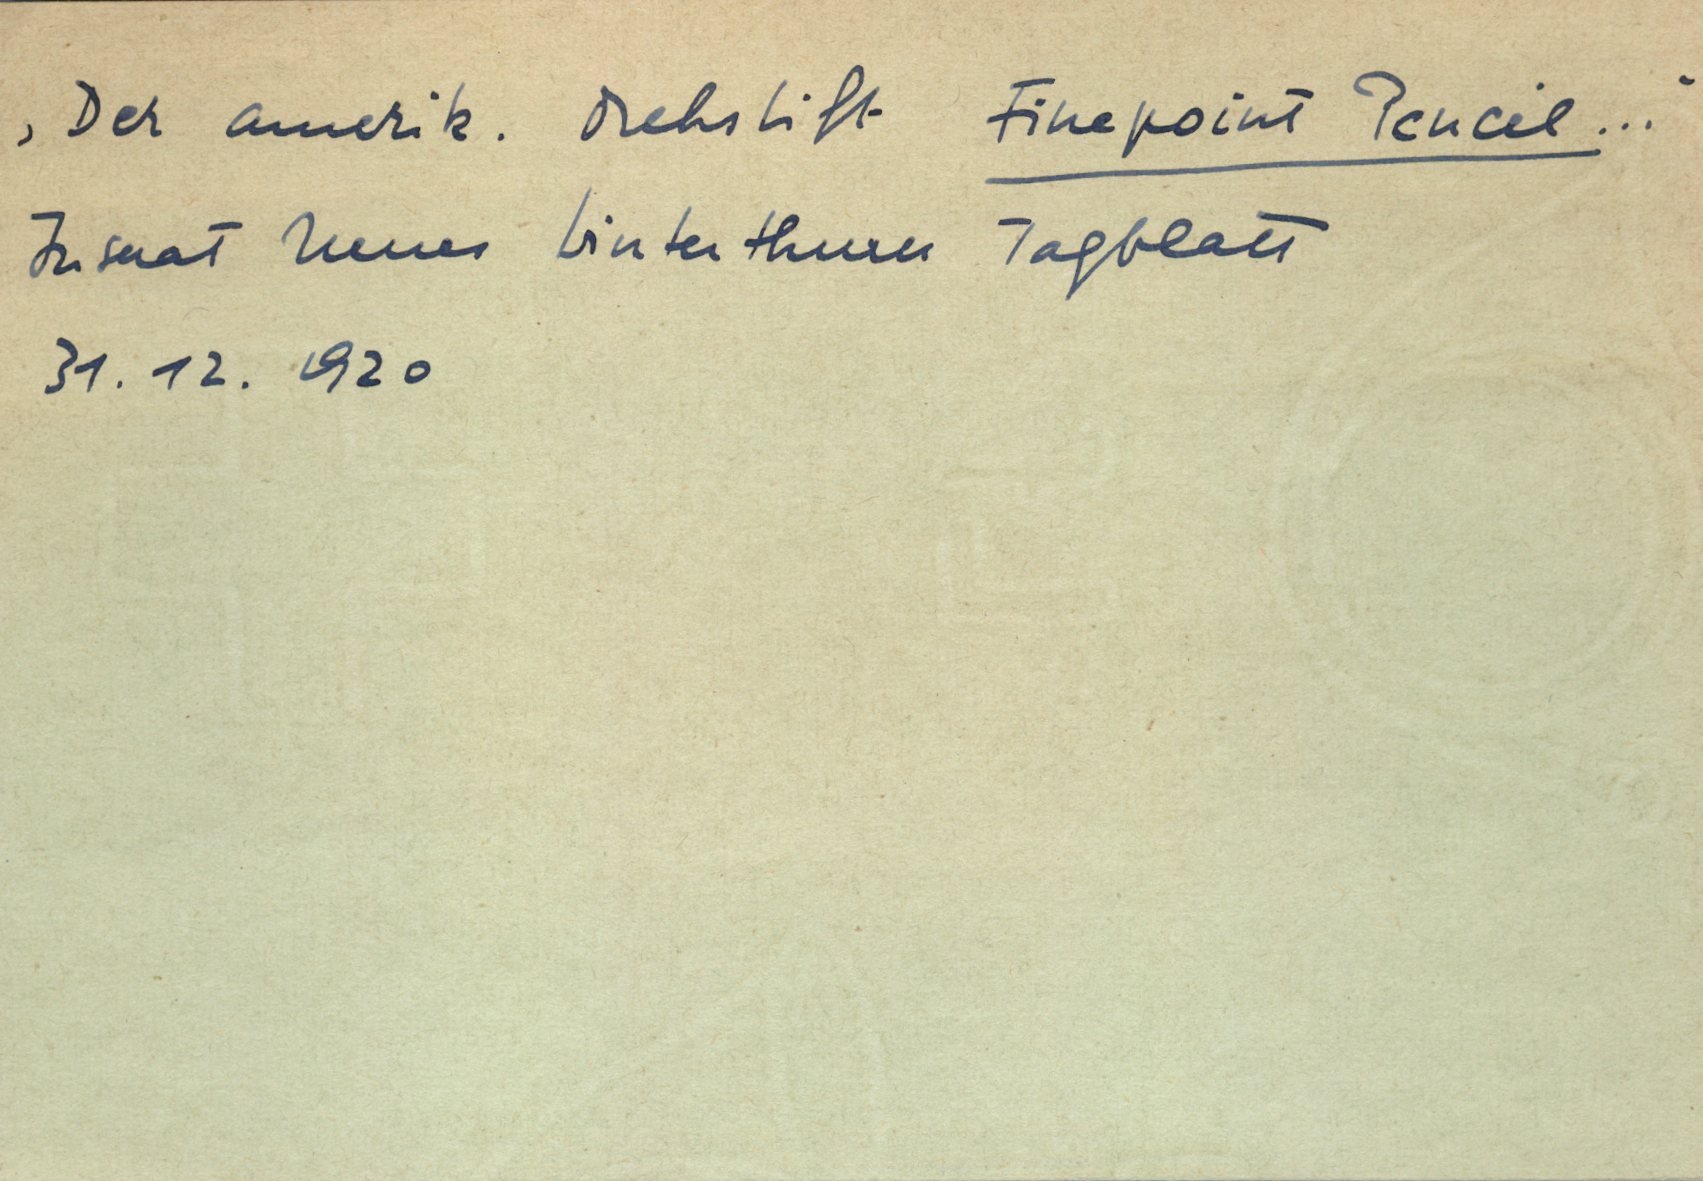 „Der amerik. Drehstift Finepoint Pencil..."
Inserat Neues Winterthurer Tagblatt
31. 12. 1920